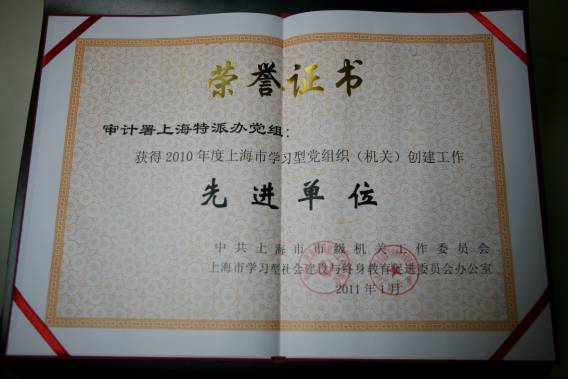 荣誉证书
审计署上海特派办党组：
获得2010年度上海市学习型党组织（机关）创建工作
先进单位
中共上海市市级机关工作委员会
上海市学习型社会建设与终身教育促进委员会办公室
2011年1月